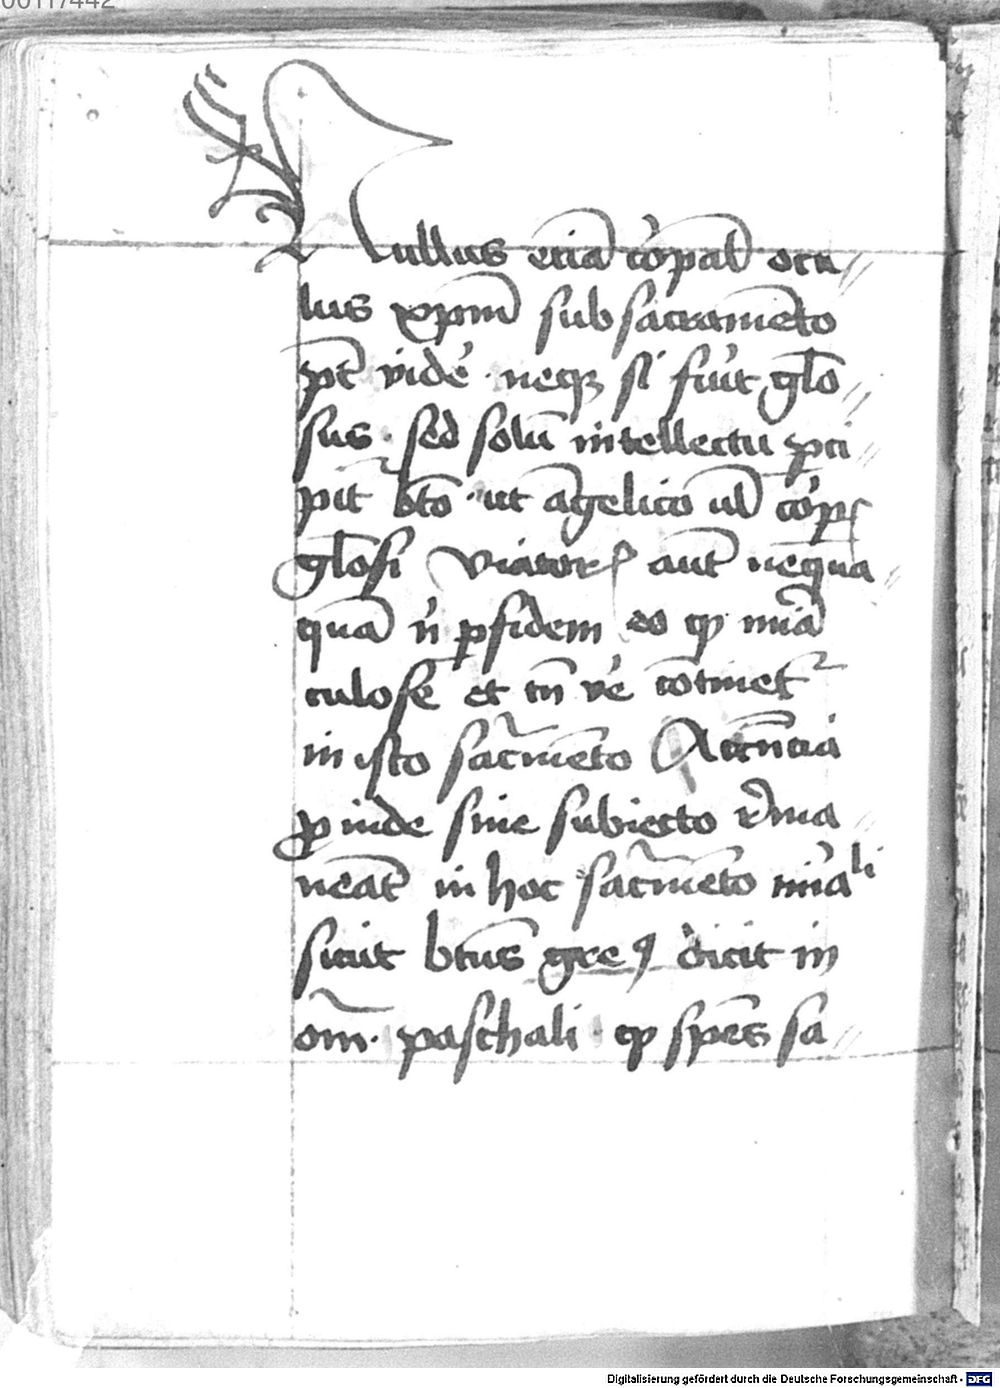 00117442
Nullus eciā cꝰoꝑal ocu//
lus xpm̄ sub sacramēto
pt̄ vide᷑ · neqꝫ si fuᷓit glo̅//
sus · sed solū intellectu ꝑci//
pit᷑ bt̄o · ut āgelico ul̄ coꝑ
glōsi viatorꝝ aut̄ nequa//
quā n̄ ꝑ fidem eo ꝙ mirā
culose et tn̄ ve᷑ cōtinet᷑
in isto sacᷓmēto Accn̄cia
ꝓ inde sine subiecto rᷓma//
neāt in hoc sacᷓmēto mirali
sicut btūs greꝯ dicit in
om̄ · paschali · ꝙ sp̄es sa//
Digitalisierung gefördert durch die Deutsche Forschungsgemeinschaft - DFG